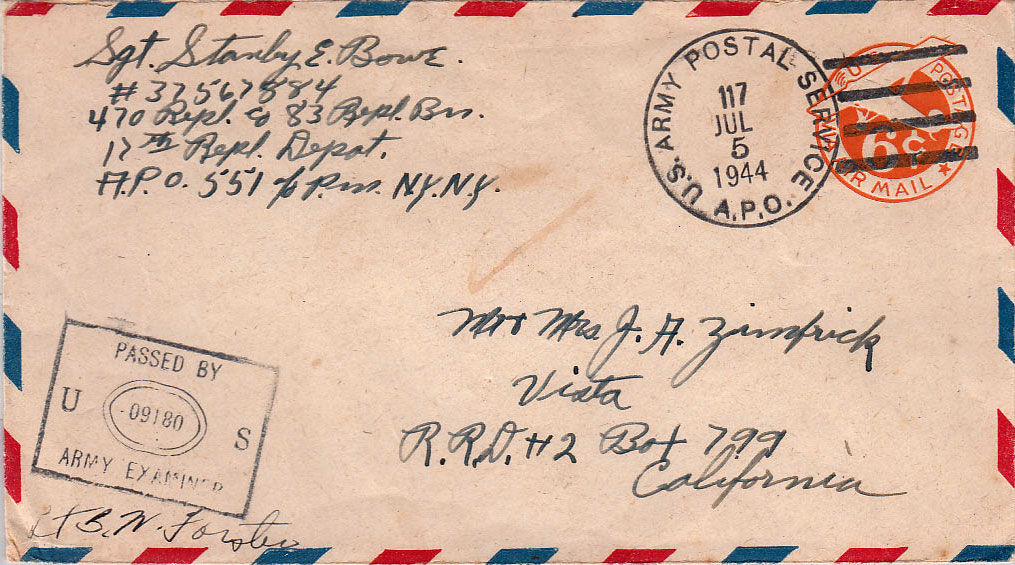 Sgt. Stanley E. Bowe.
# 37567884
470 Repl. Co 83 Repl. Bn.
17th Repl. Depot.
A.P.O. 551 c/o P.M. N.Y. N.Y.
U.S. ARMY POSTAL SERVICE
117
JUL
5
1944
A.P.O.
U POSTAGE
6¢
AIR MAIL
Mr & Mrs. J. A. Zimbrick
Vista
R.R.D. #2 Box 799
California
PASSED BY
U 09180 S
ARMY EXAMINER
Lt B. W. Forster